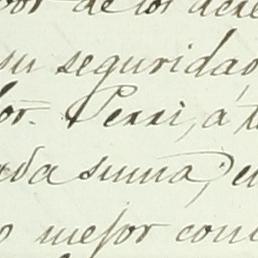 por de los acre
su seguridad
or. Perri, á t
da suma; en
mejor con